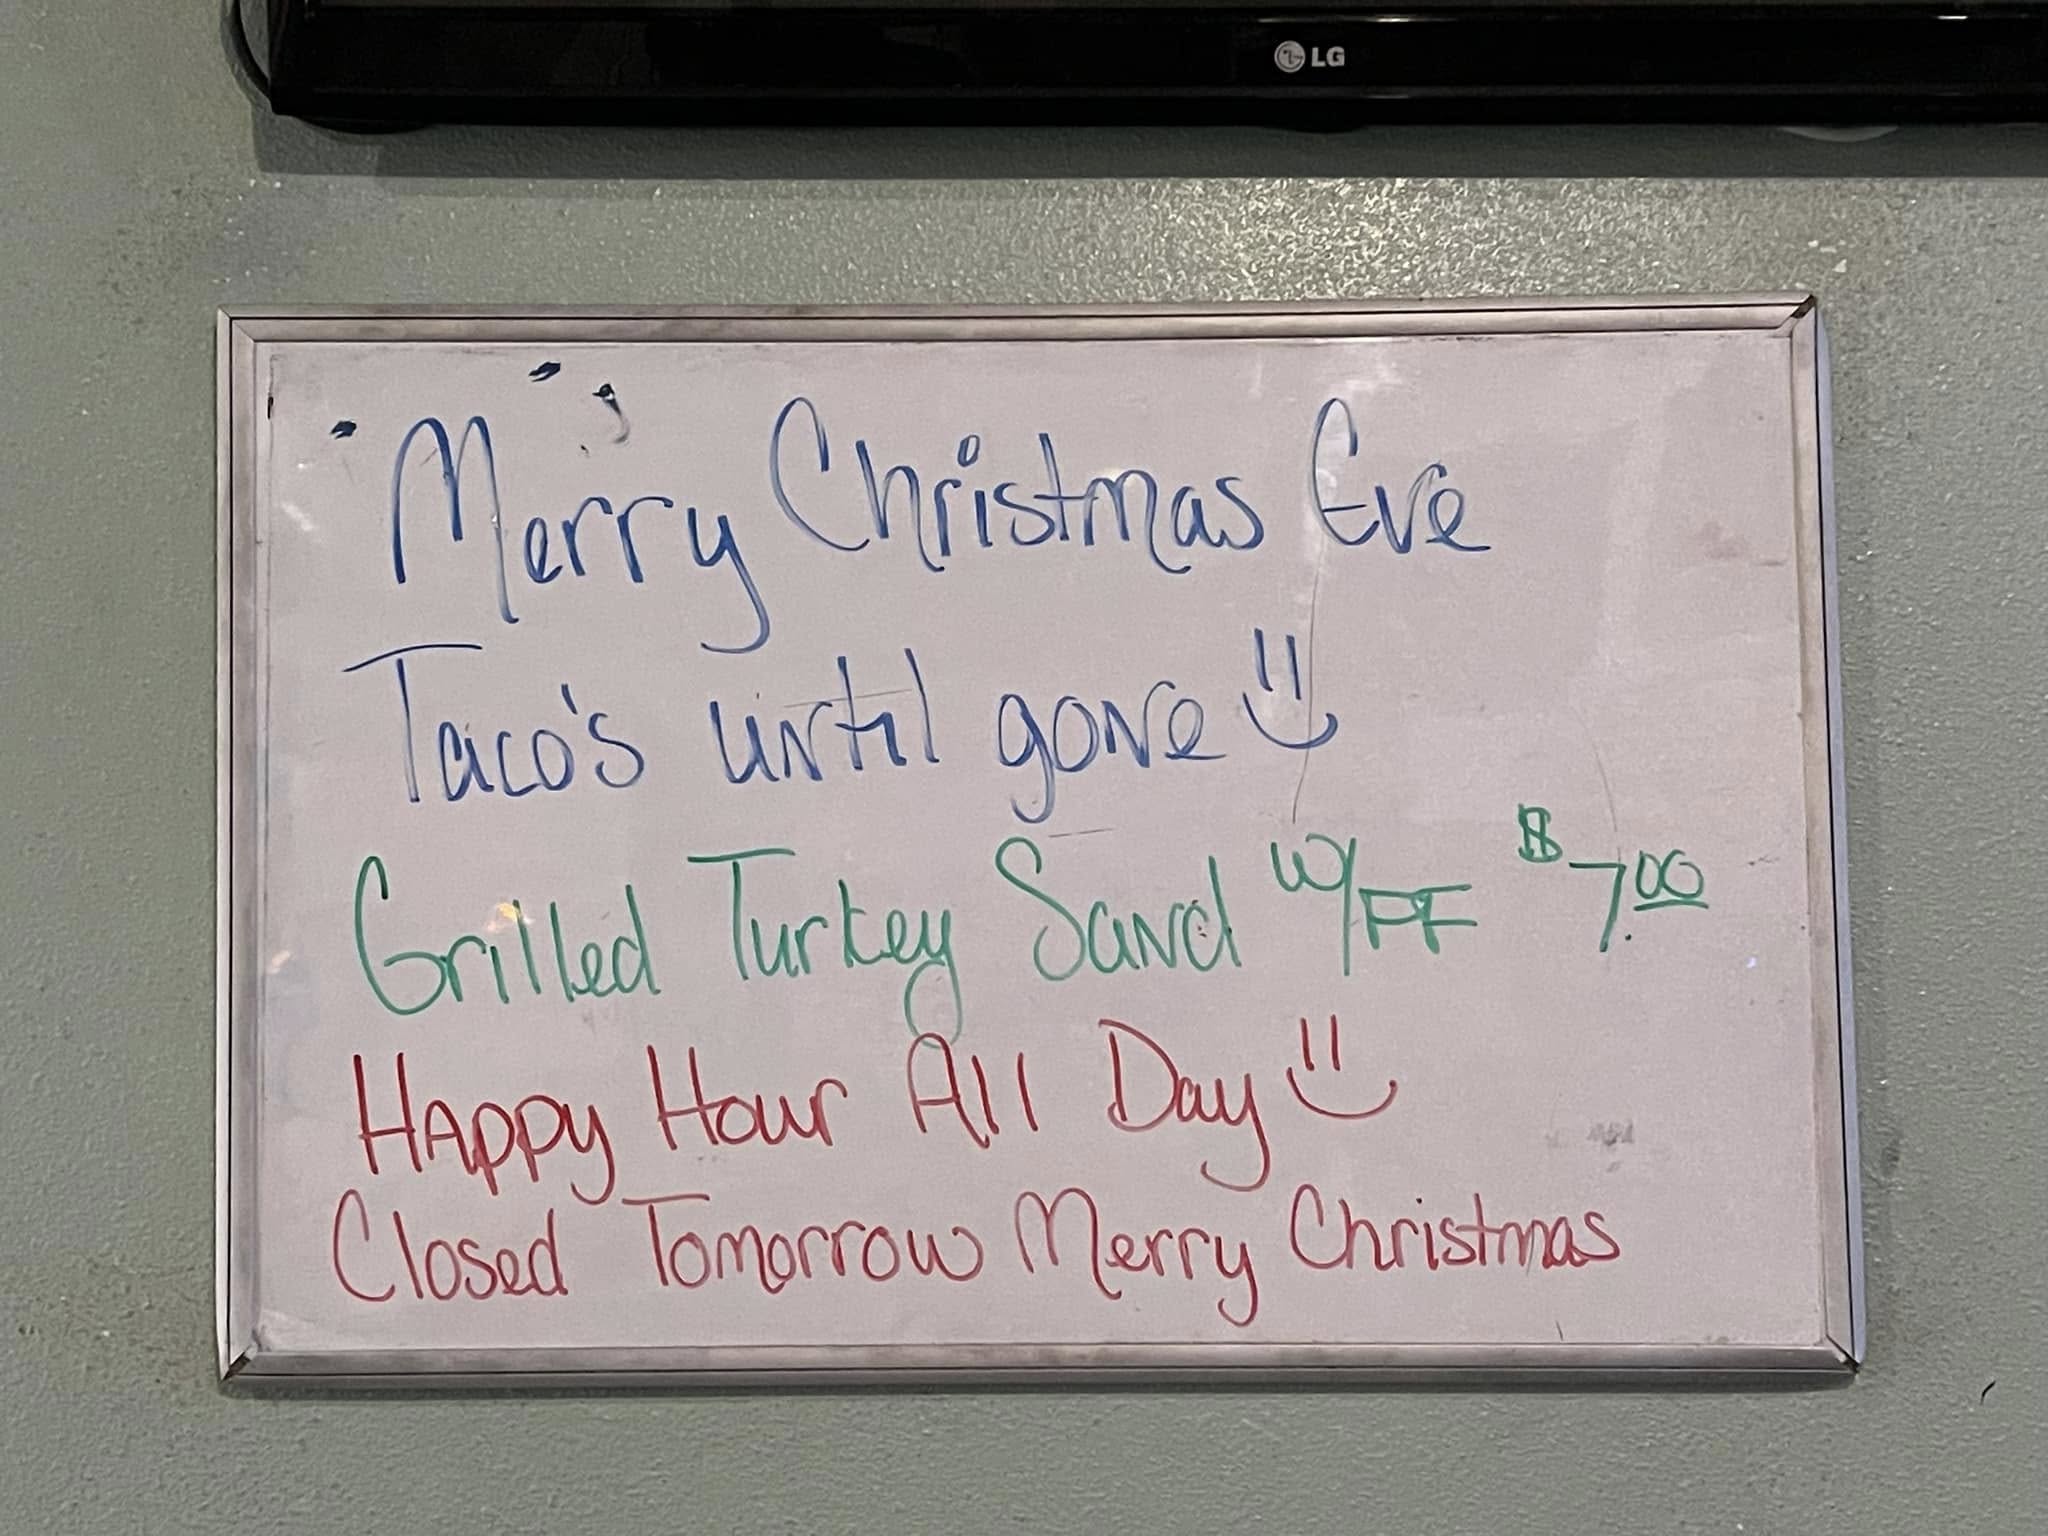 LG
Merry Christmas Eve
Taco's until gone
Grilled Turkey Sand w/FF $7.00
Happy Hour All Day
Closed Tomorrow Merry Christmas